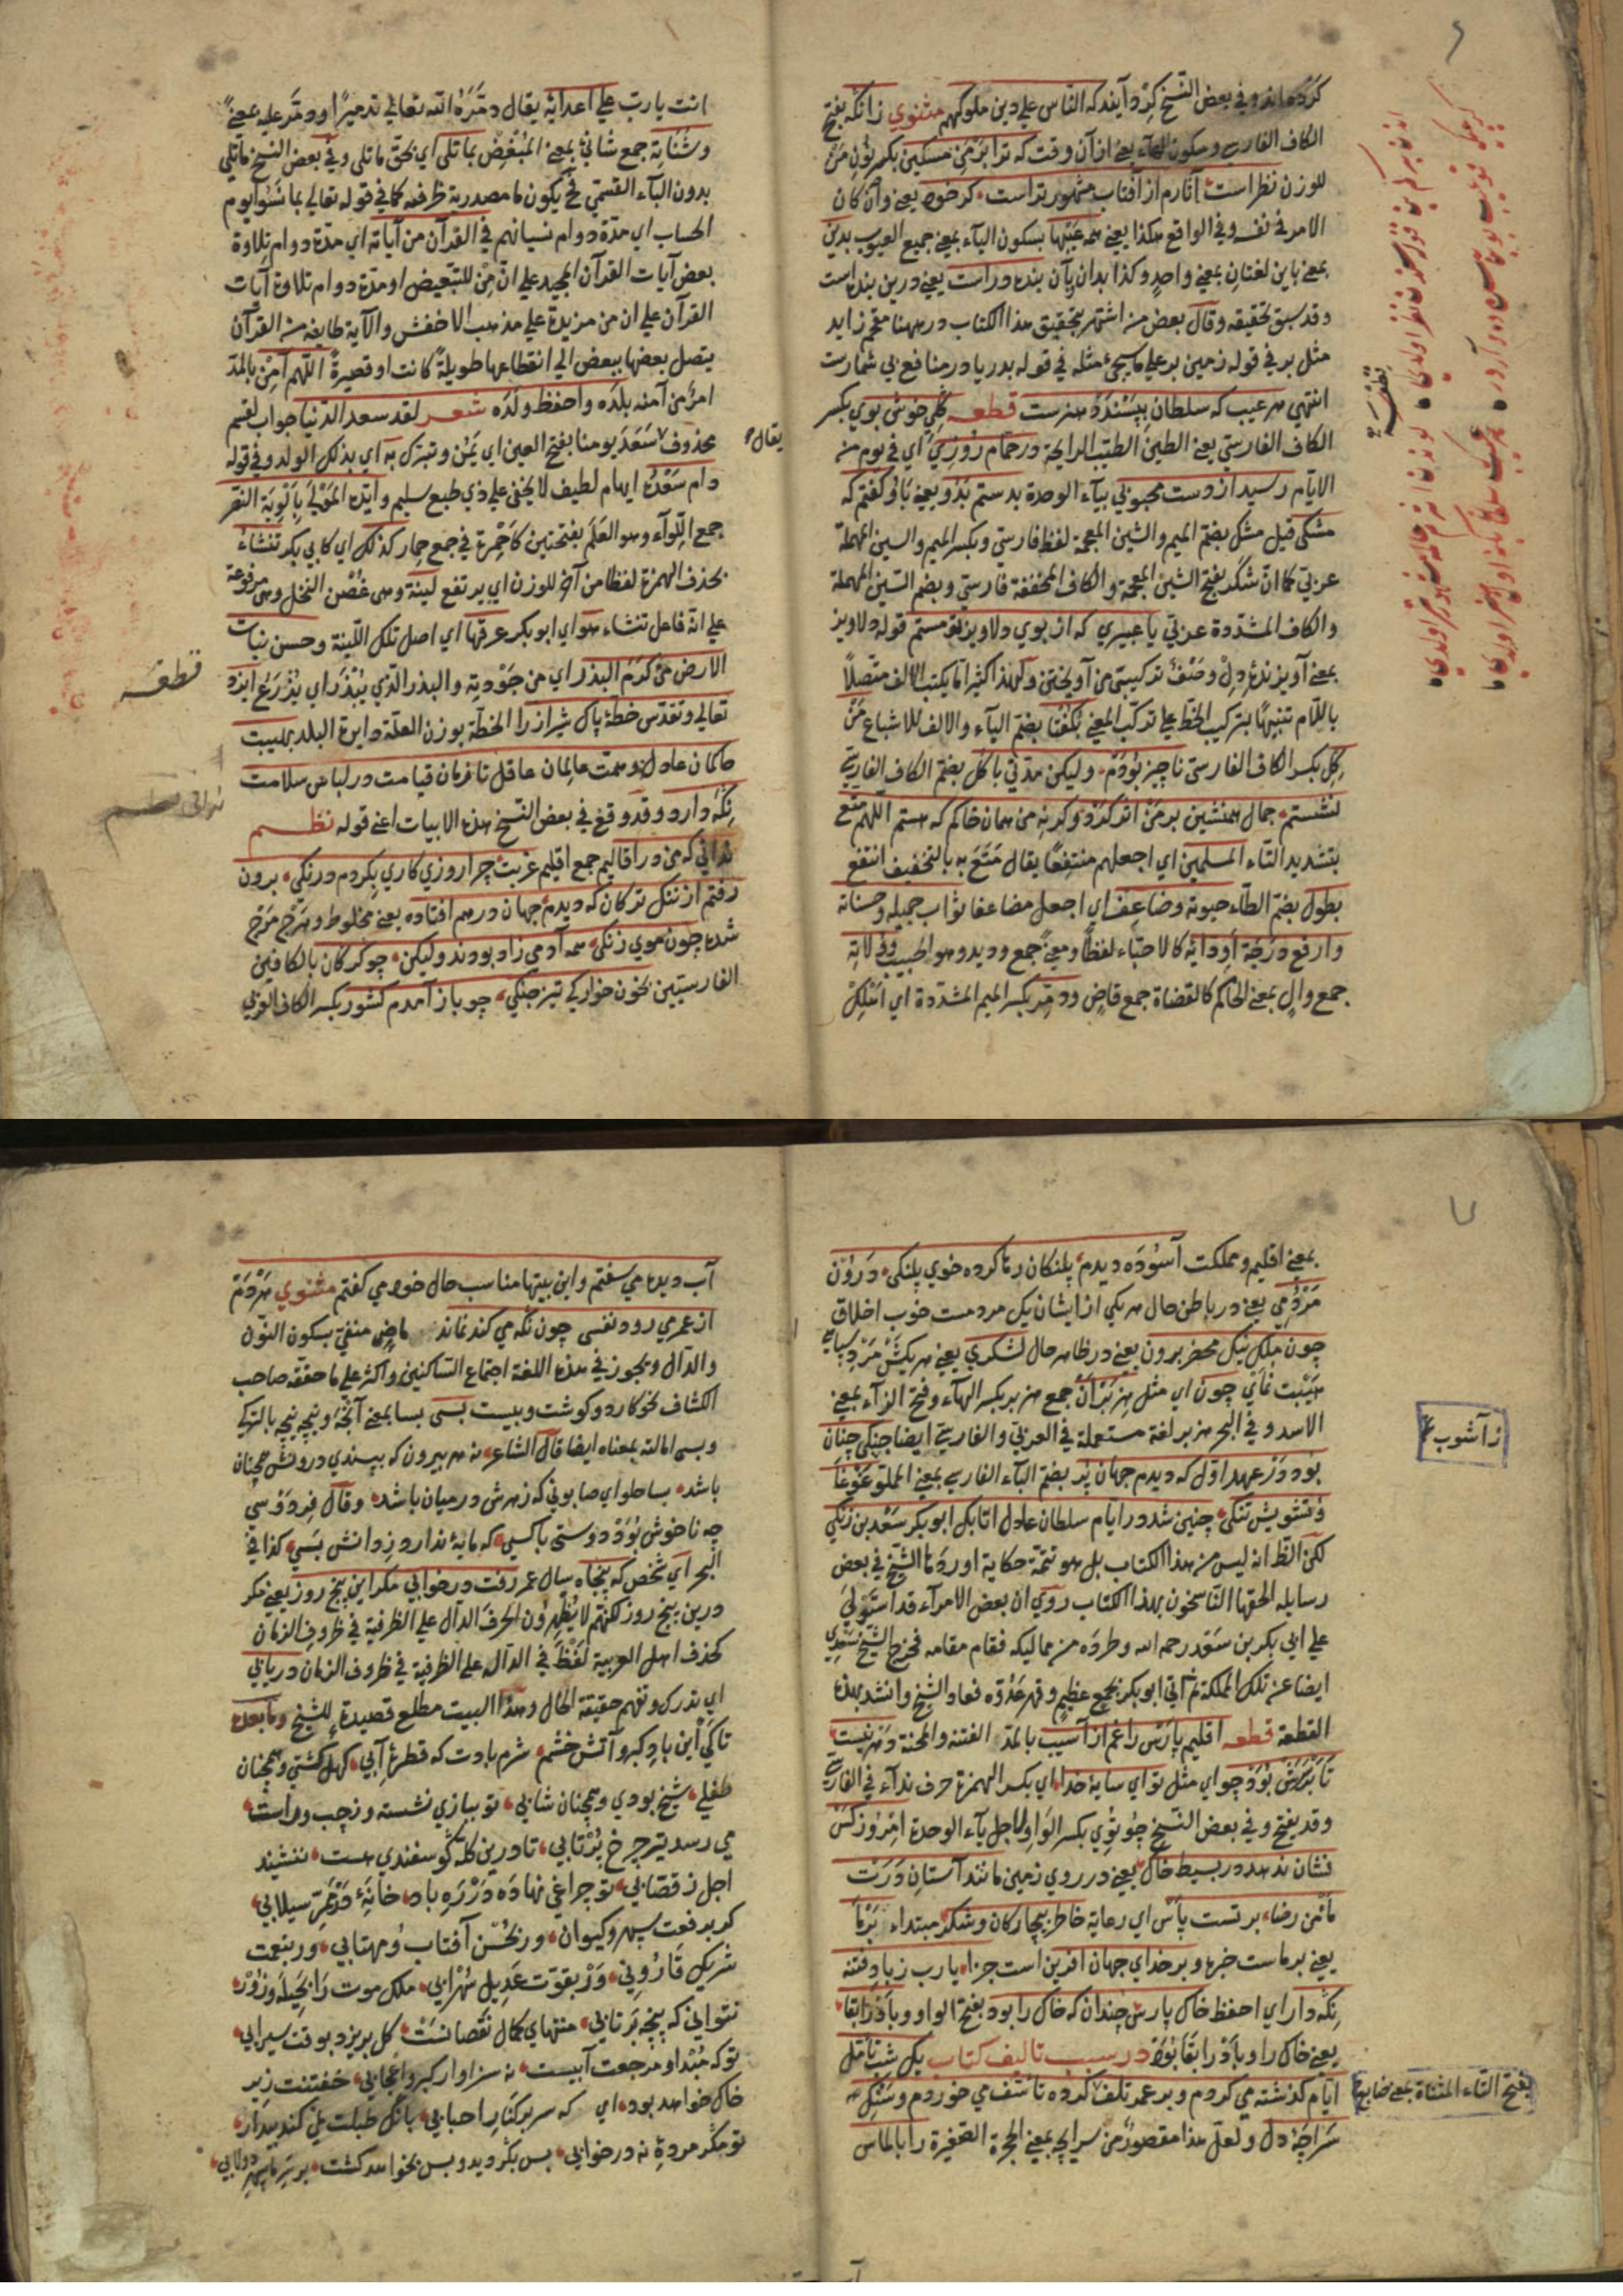 كرده اند وفي بعض النسخ كرد آيند كه الناس على دين ملوكهم مثنوي زانكه بفتح
الكاف الفارسي وسكون الهآء يعني از آن وقت كه ترا بر من مسكين بكسر نون من
للوزن نظراست آثارم از آفتاب مشهورتراست كر خود يعني وان كان
الامر في نفسه وفي الواقع هكذا يعني همه عيبها بسكون الياء بمعنى جميع العيوب بدين
بمعنى باين لغتان بمعنى واحد وكذا بدان بآن بنده دراست يعني درين بنده است
وقد سبق تحقيقه وقال بعض من اشتهر بتحقيق هذا الكتاب در ههنا مقحم زايد
مثل بر في قوله زمين بر على ما سيجئ مثله في قوله بدريا در منافع بي شمارست
انتهى هر عيب كه سلطان بپسندد هنرست قطعه كلي خوش بوي بكسر
الكاف الفارسي يعني الطين الطيب الرايحة در حمام روزي اي في يوم من
الايام رسيد از دست محبوبي بياء الوحدة بدستم بدو يعني باو كفتم كه
مشكى قيل مشك بضم الميم والشين المعجمة لفظ فارسي وبكسر الميم والسين المهملة
عربي كما ان شكر بفتح الشين المعجمة والكاف المخففة فارسي وبضم السين المهملة
والكاف المشددة عربي يا عبيري كه از بوي دلاويز تو مستم قوله دلاويز
بمعنى آويزنده دل وصف تركيبي من آويختن ولهذا كثيرا ما يكتب الالف متصلا
باللام تنبيها بتركيب الخط على تركب المعنى بكفتا بضم الباء والالف للاشباع من
كل بكسر الكاف الفارسي ناچيز بودم وليكن مدتي با كل بضم الكاف الفارسي
نشستم جمال همنشين بر من اثر كرد وكرنه من همان خاكم كه هستم اللهم متع
بتشديد التاء المسلمين اي اجعلهم منتفعا يقال متع به بالتخفيف انتفع
بطول بضم الطاء حيوته وضاعف اي اجعل مضاعفا ثواب جميله وحسناته
وارفع درجة اودائه كالاحباء لفظا ومعنى جمع وديد وهو الحبيب وولاته
جمع وال بمعنى الحاكم كالقضاة جمع قاض ودمر بكسر الميم المشددة اي اهلك
انت يا رب على اعدائه يقال دمره الله تعالى تدميرا ودمر عليه بمعنى
وشناته جمع شانئ بمعنى المبغض بما تلى اي بحق ما تلى وفي بعض النسخ ما تلى
بدون الباء القسمي فح يكون ما مصدرية ظرفه كما في قوله تعالى بما نسوا يوم
الحساب اي مدة دوام نسيانهم في القرآن من آياته اي مدة دوام تلاوة
بعض آيات القرآن المجيد على ان من للتبعيض او مدة دوام تلاوة آيات
القرآن على ان من مزيدة على مذهب الاخفش والآية طايفة من القرآن
يتصل بعضها ببعض الى انقطاعها طويلة كانت او قصيرة اللهم آمن بالمد
امر من آمنه بلده واحفظ ولده شعر لقد سعد الدنيا جواب لقسم
محذوف سعد يومنا بفتح العين اي يمن وتبرك به اي بذلك الولد وفي قوله
يقال
دام سعده ايهام لطيف لا يخفى على ذي طبع سليم وايده المولى بالوية النصر
جمع اللوآء وهو العلم بفتحتين كاحمرة في جمع حمار كذلك اي كابي بكر تنشاء
بحذف الهمزة لفظا من آخره للوزن اي يرتفع لينة وهي غصن النخل وهي مرفوعة
على انه فاعل تنشاء هو اي ابو بكر عرقها اي اصل تلك اللينة وحسن نبات
الارض من كرم البذر اي من جودته والبذر الذي يبذر اي يزرع ايزد
قطعه
تعالى وتقدس خطه پاك شيراز را الخطة بوزن العلة دايرة البلد بهيبت
حاكمان عادل وهمت عالمان عاقل تا زمان قيامت در لباس سلامت
نكه دارد وقد وقع في بعض النسخ هذه الابيات اعني قوله نظم
نداني كه من در اقاليم جمع اقليم غربت چرا روزي كاري بكردم درنكي برون
رفتم از ننك تركان كه ديدم جهان درهم افتاده يعني مخلوط وهرج مرج
شده چون موي زنكى همه آدمي زاد بودند وليكن چو كركان بالكافين
الفارسيتين بخون خواركي تيز چنكي چو باز آمدم كشور بكسر الكاف العربي
بمعنى اقليم ومملكت آسوده ديدم پلنكان رها كرده خوي پلنكى درون
مردمي يعني در باطن حال هر يكي از ايشان يك مردمست خوب اخلاق
چون ملك نيك محضر برون يعني در ظاهر حال لشكري يعني هر يكش مرد سپاهي
هيبت نماي چون اي مثل هزبران جمع هزبر بكسر الهآء وفتح الزآء بمعنى
الاسد وفي البحر هزبر لغة مستعملة في العربي والفارسي ايضا جنكي چنان
زآشوب
بود در عهد اول كه ديدم جهان پر بضم الباء الفارسي بمعنى المملو غوغا
وتشويش تنكى چنين شد در ايام سلطان عادل اتابك ابو بكر سعد بن زنكي
لكن الظ انه ليس من هذا الكتاب بل هو تتمة حكاية اوردها الشيخ في بعض
رسايله الحقها الناسخون بهذا الكتاب روي ان بعض الامرآء قد استولى
على ابي بكر بن سعد رحمه الله وطرده من ممالكه فقام مقامه فخرج الشيخ سعدي
ايضا عن تلك المملكة ثم اتى ابو بكر بجمع عظيم وقهر عدوه فعاد الشيخ وانشد بهذه
القطعة قطعه اقليم پارس را غم از آسيب بالمد الفتنة والمحنة دهر نيست
تا برسش بود چو اي مثل تو اي ساية خدا اي بكسر الهمزة حرف ندآء في الفارسي
وقد يفتح وفي بعض النسخ چو توي بكسر الواو لاجل ياء الوحدة امروز كس
نشان ندهد در بسيط خاك يعني در روي زمين مانند آستان درت
مأمن رضا بر تست پاس اي رعاية خاطر بيچاركان وشكر مبتداء بر ما
يعني بر ماست خبره وبر خداي جهان آفرين است جزا يا رب زباد فتنه
نكه دار اي احفظ خاك پارس چندان كه خاك را بود بفتح الواو وباد را بقا
يعني خاك را وباد را بقا بود در سبب تاليف كتاب يك شب تأمل
ايام كذشته مي كردم وبر عمر تلف كرده تأسف مي خوردم وسنك
بفتح التاء المثناة بمعنى ضايع
سراچه دل ولعل هذا مقصور من سرايچه بمعنى الحجرة الصغيرة را بالماس
آب ديده مي سفتم واين بيتها مناسب حال خود مي كفتم مثنوي هر دم
از عمر مي رود نفسى چون نكه مي كنم نماند ماض منفي بسكون النون
والدال ويجوز في هذه اللغة اجتماع الساكنين واكثر على ما حققه صاحب
الكشاف نحو كارد وكوشت وبيست بسى بسا بمعنى آنجه ونيچه نيچه بالتركي
وبسى امالته بمعناه ايضا قال الشاعر نه هر بيرون كه بپسندي درونش همچنان
باشد بسا حلواي صابوني كه زهرش در ميان باشد وقال فردوسي
چه ناخوش بود دوستى با كسي كه مايه ندارد ز دانش بسي كذا في
البحر اي شخص كه پنجاه سال عمر رفت در خوابي مكر اين پنج روز يعني مكر
درين پنج روز لكنهم لا يظهرون الحرف الدال على الظرفية في ظروف الزمان
كحذف اهل العربية لفظ في الدال على الظرفية في ظروف الزمان دريابي
اي تدرك وتفهم حقيقة الحال وهذا البيت مطلع قصيدة للشيخ وما بعده
تا كي اين باد كبر وآتش خشم شرم بادت كه قطرة آبي كهل كشتي وهمچنان
طفلي شيخ بودي وهمچنان شابي تو ببازي نشسته وز چپ وراست
مي رسد تير چرخ پرتابي تا درين كله كوسفندي هست ننشيند
اجل ز قصابي تو چراغي نهاده در ره باد خانه در ممر سيلابي
كر برفعت سپهر وكيوان ور بحسن آفتاب ومهتابي ور بنعمت
شريك قاروني ور بقوت عديل سهرابي ملك موت را بحيله وزور
نتواني كه پنجه برتابي منتهاي كمال نقصانست كل بريزد بوقت سيرابي
تو كه مبدا ومرجعت آبيست نه سزاوار كبر واعجابي خفتنت زير
خاك خواهد بود اي كه سر بركنار احبابي بانك طبلت نمي كند بيدار
تو مكر مرده نه در خوابي بس بكرديد وبس بخواهد كشت بر سر ما سپهر دولابي